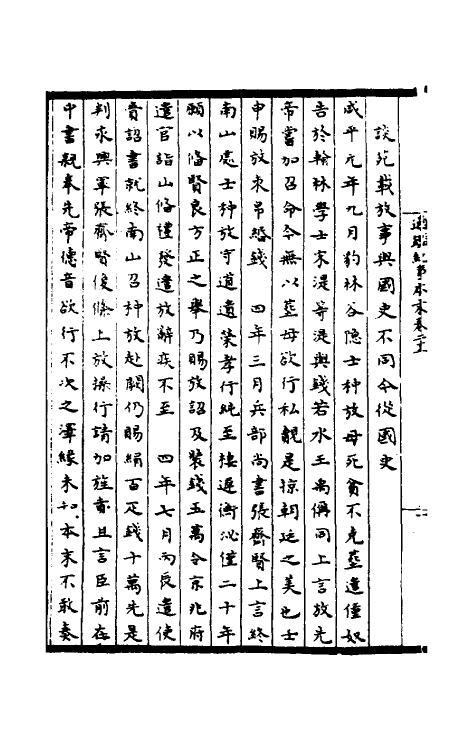 談苑載放事與國史不同今從國史
咸平元年九月豹林谷隱士种放母死貧不克葬遣僮奴
告於翰林學士宋湜等湜與錢若水王禹偁同上言放先
帝嘗加召命今無以葬母欲行私覿是掠朝廷之美也士
申賜放束帛緡錢　四年三月兵部尚書張齊賢上言終
南山處士种放守道遺榮孝行純至棲遲衡泌僅二十年
願以備賢良方正之舉乃賜放詔及裝錢五萬令京兆府
遣官詣山備禮發遣放辭疾不至　四年七月丙辰遣使
賫詔書就終南山召种放赴闕仍賜絹百疋錢十萬先是
判永興軍張齊賢復條上放操行請加旌賁且言臣前在
中書親奉先帝德音欲行不次之澤緣未知本末不敢奏